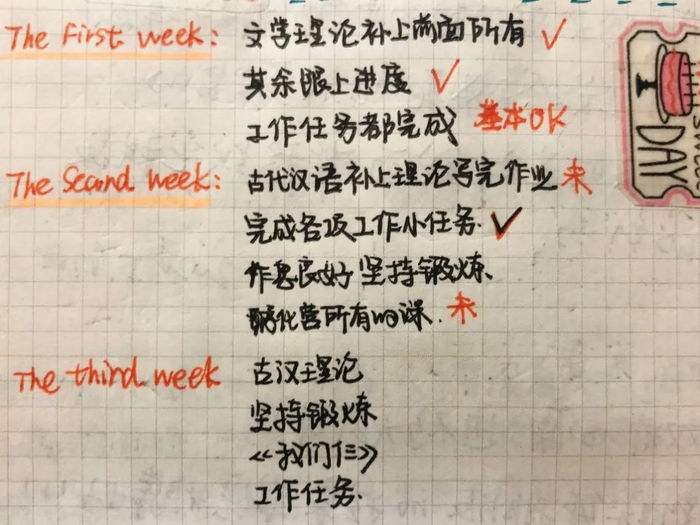 The First week: 文学理论补上前面所有 ✓
其余跟上进度 ✓
工作任务都完成 基本OK
The Second week: 古代汉语补上理论写完作业 未
完成各项工作小任务. ✓
作息良好 坚持锻炼、
孵化营所有的课. 未
The third week 古汉理论
坚持锻炼
《我们仨》
工作任务.
DAY